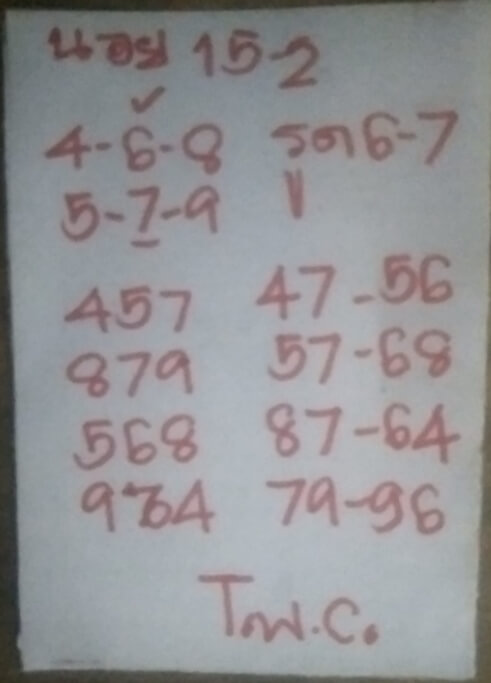 นอย 15-2
4-6-8 รต 6-7
5-7-9
457 47-56
879 57-68
568 87-64
964 79-96